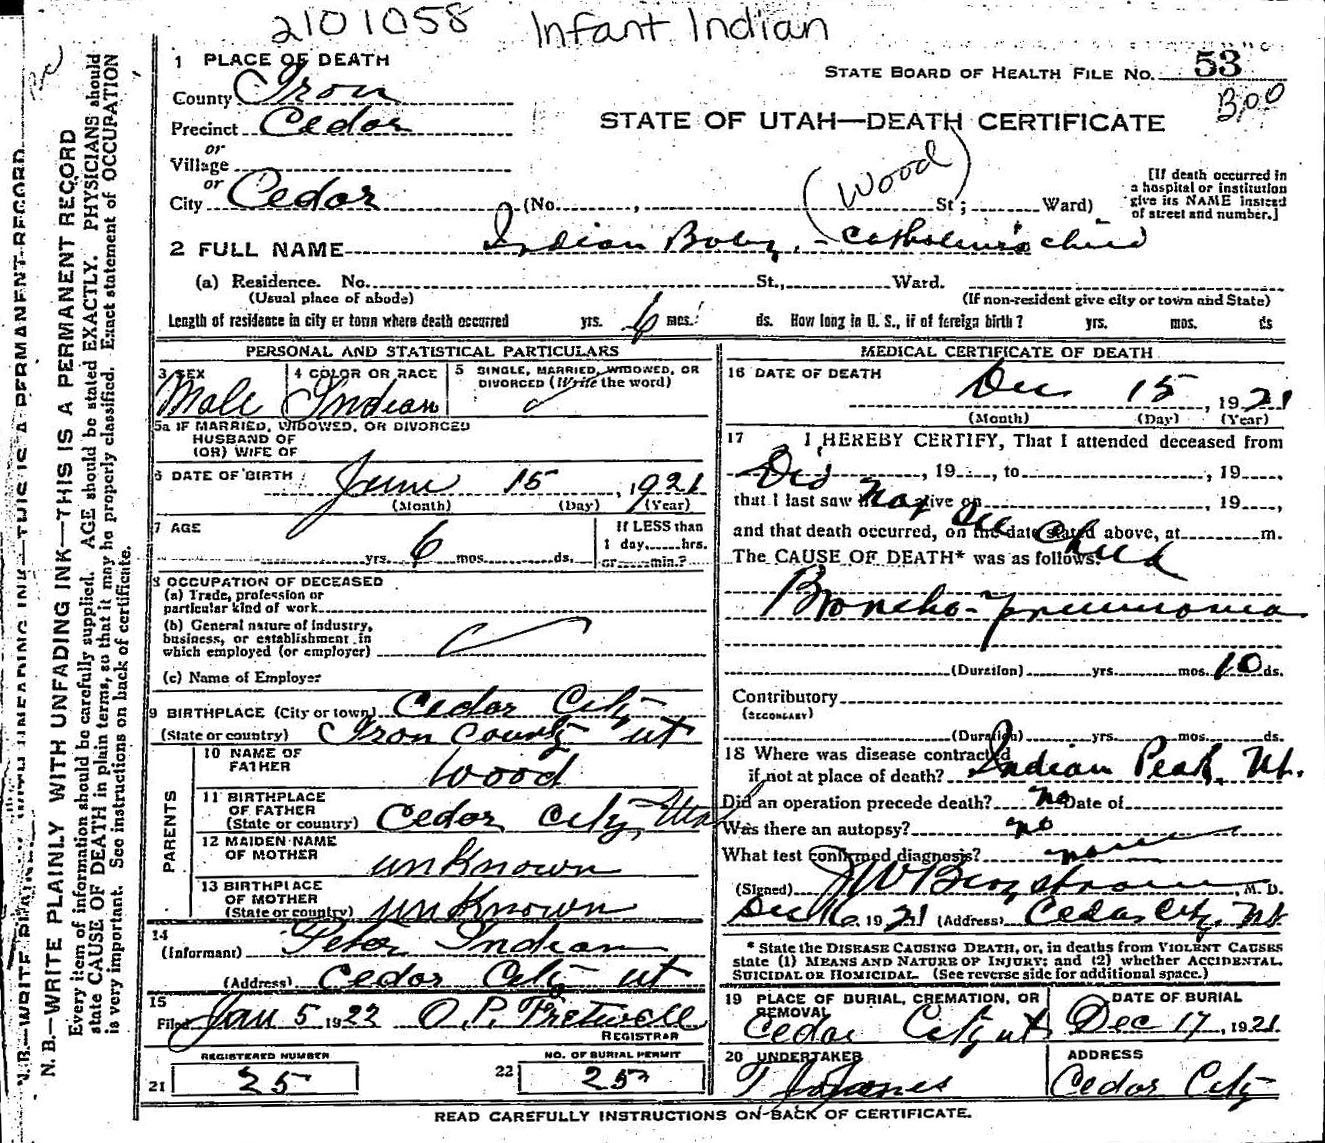 2101058 Infant Indian
1 PLACE OF DEATH
STATE BOARD OF HEALTH FILE NO. 53
County Iron
Precinct Cedar
STATE OF UTAH—DEATH CERTIFICATE
or
Village
or
City Cedar (No. , St; Ward)
(Wood)
[If death occurred in
a hospital or institution
give its NAME instead
of street and number.]
2 FULL NAME Indian Boby, - child
(a) Residence. No. St., Ward.
(Usual place of abode) (If non-resident give city or town and State)
Length of residence in city or town where death occurred yrs. 6 mos. ds. How long in U. S., if of foreign birth? yrs. mos. ds
PERSONAL AND STATISTICAL PARTICULARS
3 SEX Male
4 COLOR OR RACE Indian
5 SINGLE, MARRIED, WIDOWED, OR
DIVORCED (Write the word)
5a IF MARRIED, WIDOWED, OR DIVORCED
HUSBAND OF
(OR) WIFE OF
6 DATE OF BIRTH June 15, 1921
(Month) (Day) (Year)
7 AGE yrs. 6 mos. ds.
If LESS than
1 day, hrs.
or min.?
8 OCCUPATION OF DECEASED
(a) Trade, profession or
particular kind of work
(b) General nature of industry,
business, or establishment in
which employed (or employer)
(c) Name of Employer
9 BIRTHPLACE (City or town) Cedar City
(State or country) Iron County Ut
PARENTS
10 NAME OF
FATHER Wood
11 BIRTHPLACE
OF FATHER
(State or country) Cedar City, Utah
12 MAIDEN NAME
OF MOTHER unknown
13 BIRTHPLACE
OF MOTHER
(State or country) unknown
14
(Informant) Peter Indian
(Address) Cedar City Ut
15
Filed Jan 5 1922 O. P. Fretwell
REGISTRAR
21 REGISTERED NUMBER 25
22 NO. OF BURIAL PERMIT 25
MEDICAL CERTIFICATE OF DEATH
16 DATE OF DEATH Dec 15, 1921
(Month) (Day) (Year)
17 I HEREBY CERTIFY, That I attended deceased from
Did , 19 , to , 19 ,
that I last saw h not alive on , 19 ,
and that death occurred, on the date stated above, at m.
see child
The CAUSE OF DEATH* was as follows:
Broncho-Pneumonia
(Duration) yrs. mos. 10 ds.
Contributory
(SECONDARY)
(Duration) yrs. mos. ds.
18 Where was disease contracted
if not at place of death? Indian Peak, Ut.
Did an operation precede death? no Date of
Was there an autopsy? no
What test confirmed diagnosis? none
(Signed) J W Bergstrom, M. D.
Dec 16, 1921 (Address) Cedar City, Ut
* State the DISEASE CAUSING DEATH, or, in deaths from VIOLENT CAUSES
state (1) MEANS AND NATURE OF INJURY; and (2) whether ACCIDENTAL,
SUICIDAL OR HOMICIDAL. (See reverse side for additional space.)
19 PLACE OF BURIAL, CREMATION, OR
REMOVAL
Cedar City Ut
DATE OF BURIAL
Dec 17, 1921
20 UNDERTAKER
ADDRESS
Cedar City
READ CAREFULLY INSTRUCTIONS ON BACK OF CERTIFICATE.
N. B.—WRITE PLAINLY WITH UNFADING INK—THIS IS A PERMANENT RECORD
Every item of information should be carefully supplied. AGE should be stated EXACTLY. PHYSICIANS should
state CAUSE OF DEATH in plain terms, so that it may be properly classified. Exact statement of OCCUPATION
is very important. See instructions on back of certificate.